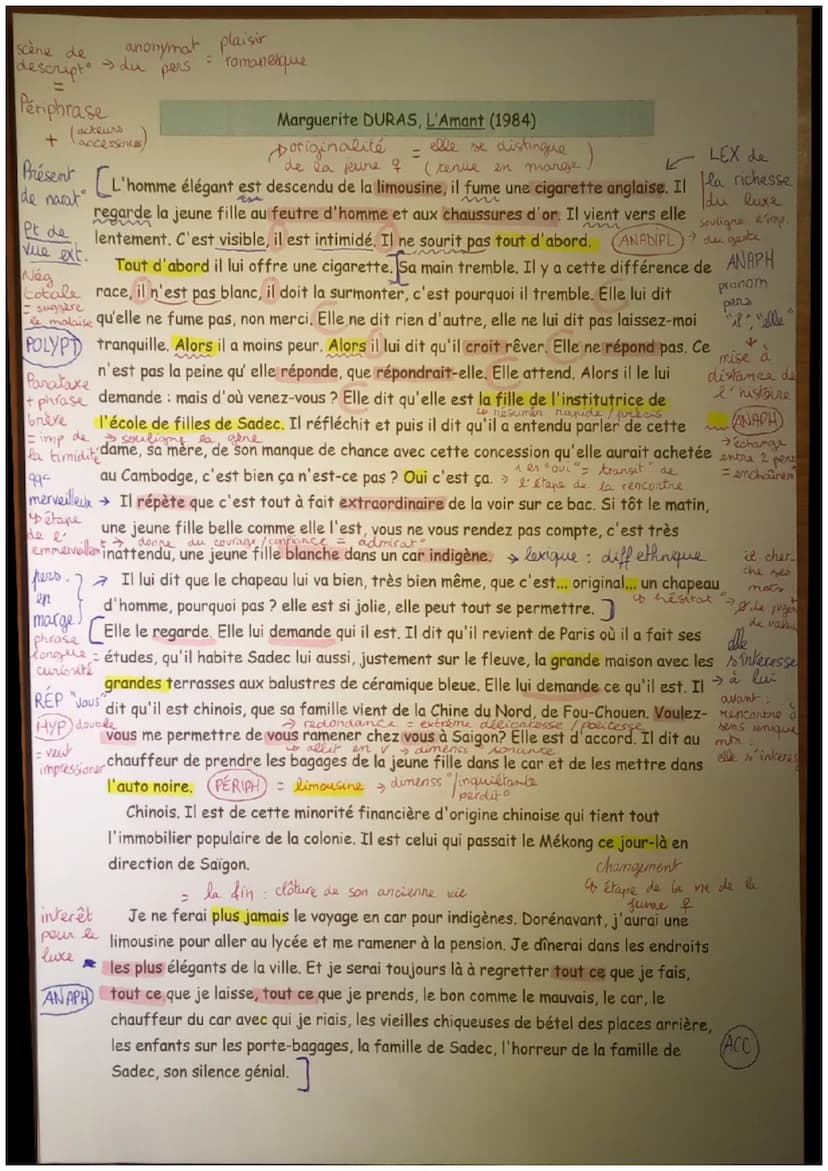 scène de
descript° → anonymat du pers = plaisir romanesque
=
Périphrase
+ (acteurs accessoires)
Marguerite DURAS, L'Amant (1984)
↳ originalité de la jeune ♀ = elle se distingue (tenue en marge)
LEX de la richesse du luxe
souligne l'imp. du geste
Présent de narat°
[L'homme élégant est descendu de la limousine, il fume une cigarette anglaise. Il
regarde la jeune fille au feutre d'homme et aux chaussures d'or. Il vient vers elle
Pt de vue ext.
lentement. C'est visible, il est intimidé. Il ne sourit pas tout d'abord. (ANADIPL)
Tout d'abord il lui offre une cigarette.[Sa main tremble. Il y a cette différence de
ANAPH pronom pers "il", "elle"
↓
mise à distance de l'histoire
Nég totale = suggère le malaise
race, il n'est pas blanc, il doit la surmonter, c'est pourquoi il tremble. Elle lui dit
qu'elle ne fume pas, non merci. Elle ne dit rien d'autre, elle ne lui dit pas laissez-moi
POLYPT
tranquille. Alors il a moins peur. Alors il lui dit qu'il croit rêver. Elle ne répond pas. Ce
n'est pas la peine qu' elle réponde, que répondrait-elle. Elle attend. Alors il le lui
Parataxe + phrase brève = imp de la timidité
demande : mais d'où venez-vous ? Elle dit qu'elle est la fille de l'institutrice de
↳ résumer rapide / précis
l'école de filles de Sadec. Il réfléchit et puis il dit qu'il a entendu parler de cette
ANAPH
→ échange entre 2 pers = enchaînem^t
→ souligne la gêne
dame, sa mère, de son manque de chance avec cette concession qu'elle aurait achetée
au Cambodge, c'est bien ça n'est-ce pas ? Oui c'est ça. → 1er "oui" = transit° de l'étape de la rencontre
qqc merveilleux → Il répète que c'est tout à fait extraordinaire de la voir sur ce bac. Si tôt le matin,
↳ étape de l'emmerveillem^t
une jeune fille belle comme elle l'est, vous ne vous rendez pas compte, c'est très
→ donne du courage/confiance = admirat°
inattendu, une jeune fille blanche dans un car indigène. → lexique : diff ethnique
pers. en marge
→ Il lui dit que le chapeau lui va bien, très bien même, que c'est... original... un chapeau
il cherche ses mots
↳ hésitat°
d'homme, pourquoi pas ? elle est si jolie, elle peut tout se permettre. ]
[Elle le regarde. Elle lui demande qui il est. Il dit qu'il revient de Paris où il a fait ses
phrase longue = curiosité
études, qu'il habite Sadec lui aussi, justement sur le fleuve, la grande maison avec les
elle s'interesse à lui
grandes terrasses aux balustres de céramique bleue. Elle lui demande ce qu'il est. Il
RÉP "vous"
dit qu'il est chinois, que sa famille vient de la Chine du Nord, de Fou-Chouen. Voulez-
avant : rencontre à sens unique
mtn : elle s'interes
HYP double = veut impressionner
→ redondance = extrême délicatesse/politesse
vous me permettre de vous ramener chez vous à Saigon? Elle est d'accord. Il dit au
↳ allit en V → dimens° sonante
chauffeur de prendre les bagages de la jeune fille dans le car et de les mettre dans
l'auto noire. (PÉRIPH) = limousine → dimenss° inquiétante
Chinois. Il est de cette minorité financière d'origine chinoise qui tient tout
l'immobilier populaire de la colonie. Il est celui qui passait le Mékong ce jour-là en
direction de Saïgon.
changement
↳ étape de la vie de la jeune ♀
= la fin : clôture de son ancienne vie
interêt pour le luxe
Je ne ferai plus jamais le voyage en car pour indigènes. Dorénavant, j'aurai une
limousine pour aller au lycée et me ramener à la pension. Je dînerai dans les endroits
les plus élégants de la ville. Et je serai toujours là à regretter tout ce que je fais,
ANAPH
tout ce que je laisse, tout ce que je prends, le bon comme le mauvais, le car, le
chauffeur du car avec qui je riais, les vieilles chiqueuses de bétel des places arrière,
les enfants sur les porte-bagages, la famille de Sadec, l'horreur de la famille de
ACC
Sadec, son silence génial. ]